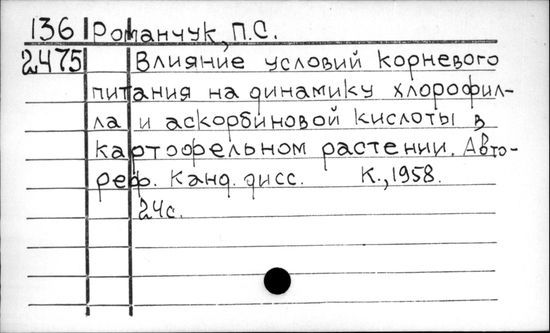 136 Романчук, П.С.
2475 Влияние условий корневого
питания на динамику хлорофил-
ла и аскорбиновой кислоты в
картофельном растении. Авто-
реф. Канд. дисс. К., 1958.
24с.